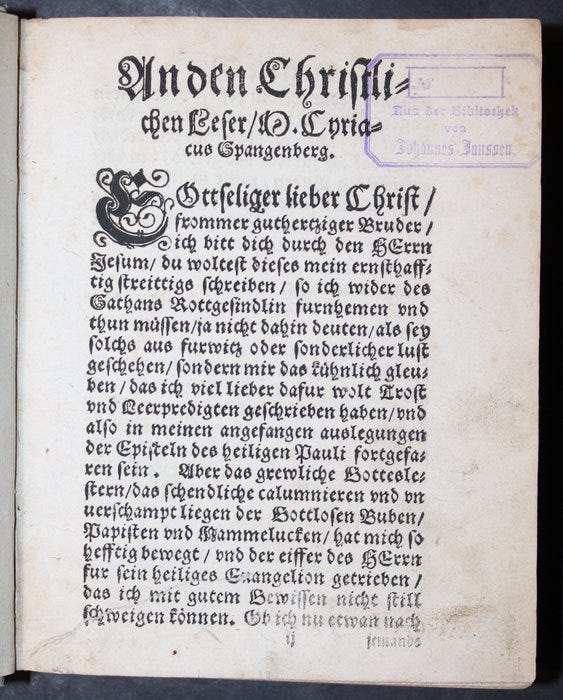 An den Christli⸗
chen Leser/ M. Cyria⸗
cus Spangenberg.
Aus der Bibliothek
von
Johannes Janssen.
GOttseliger lieber Christ/
frommer guthertziger Bruder/
ich bitt dich durch den HErrn
Jesum/ du woltest dieses mein ernsthaff⸗
tig streittigs schreiben/ so ich wider des
Sathans Rottgesindlin furnhemen vnd
thun müssen/ ja nicht dahin deuten/ als sey
solchs aus furwitz oder sonderlicher lust
geschehen/ sondern mir das kühnlich gleu⸗
ben/ das ich viel lieber dafur wolt Trost
vnd Leerpredigten geschrieben haben/ vnd
also in meinen angefangen auslegungen
der Episteln des heiligen Pauli fortgefa⸗
ren sein. Aber das grewliche Gottesle⸗
stern/ das schendliche calumnieren vnd vn
uerschampt liegen der Gottlosen Buben/
Papisten vnd Mammelucken/ hat mich so
hefftig bewegt/ vnd der eiffer des HErrn
fur sein heiliges Euangelion getrieben/
das ich mit gutem Gewissen nicht still
schweigen können. Ob ich nu etwan nach
ij jemands